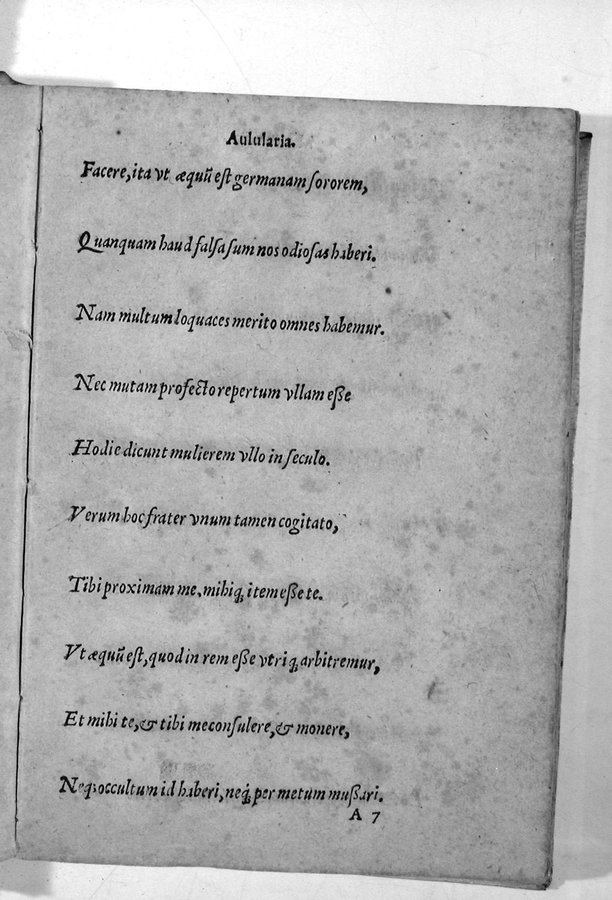 Aulularia.
Facere, ita vt æquũ est germanam sororem,
Quanquam haud falsa sum nos odiosas haberi.
Nam multum loquaces merito omnes habemur.
Nec mutam profecto repertum vllam eße
Hodie dicunt mulierem vllo in seculo.
Verum hoc frater vnum tamen cogitato,
Tibi proximam me, mihiq́; item eße te.
Vt æquũ est, quod in rem eße vtriq́; arbitremur,
Et mihi te, & tibi me consulere, & monere,
Neq; occultum id haberi, neq́; per metum mußari.
A 7